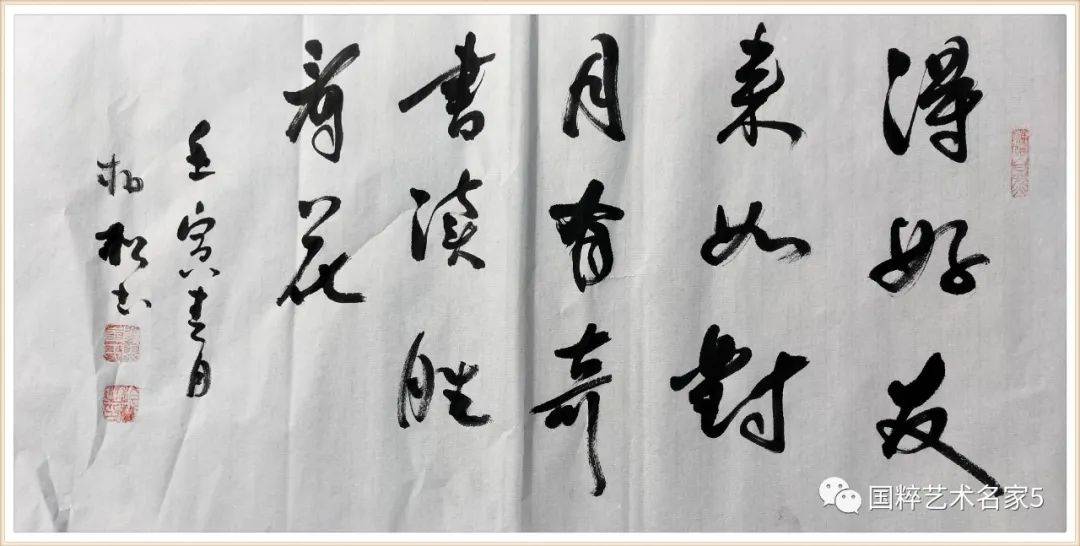 得好友
来如對
月有奇
書读勝
看花
壬寅春月
柏松书
国粹艺术名家5